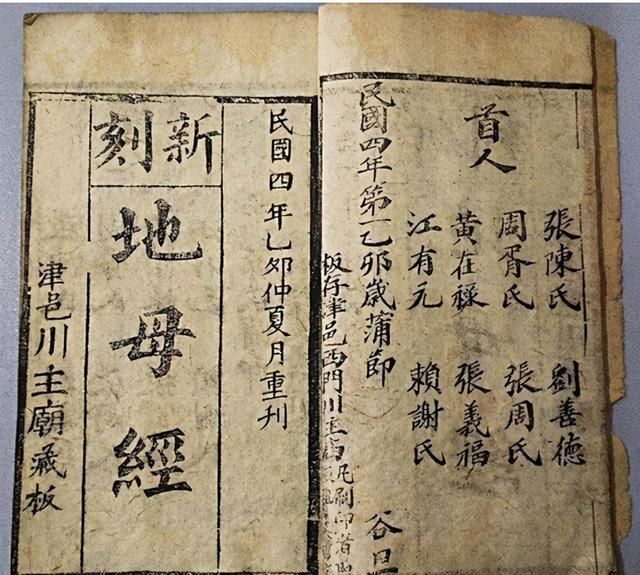 首人
張陳氏 劉善德
周胥氏 張周氏
黄在祿 張義福
江有元 賴謝氏
民國四年第一乙卯歲蒲節 谷旦
板存津邑西門川主
凡刷印首
民國四年乙卯仲夏月重刊
新刻
地母經
津邑川主廟藏板